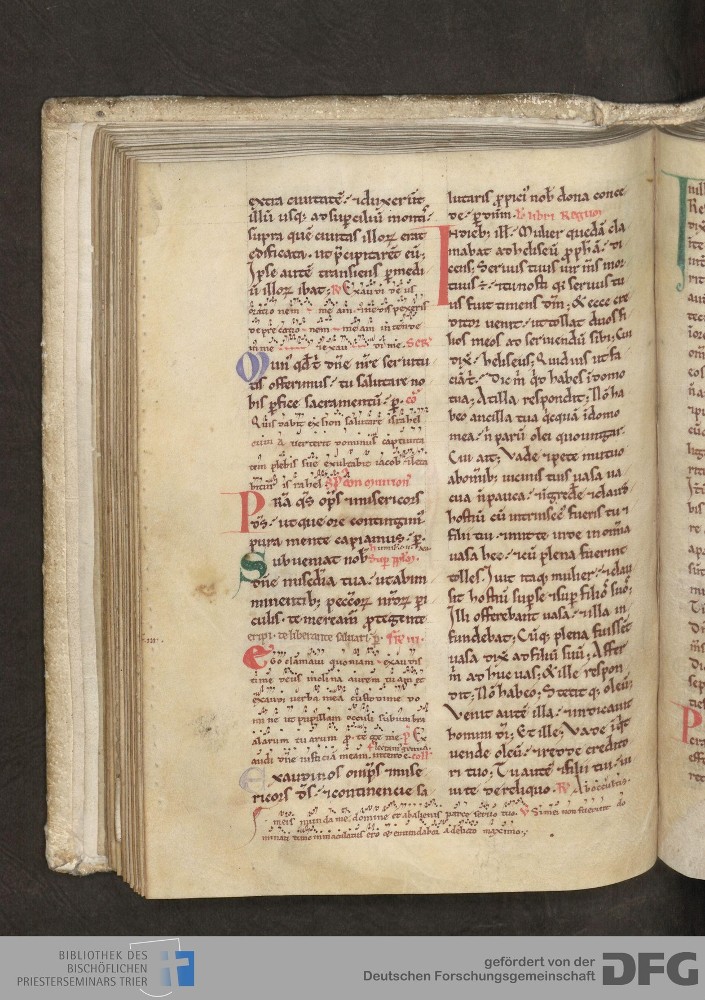 extra ciuitatē · ⁊ duxer̄t
illū usq; ad superciliū monti᷒
supra quē ciuitas illoꝝ erat
edificata · ut p̄cipitarent eū ;
Ipse autē transiens p̄ medi
ū illoꝝ ibat ; R̄ Exaudi deus
oratio nem me am ⁊ ne despexeris
depre catio nem me am in tende
in me ⁊ exau di me . Secr̄
Oun᷒ qs̄ dn̄e nr̄e seruitu
tis offerimus · tu salutare no
bis ꝑfice sacramentū · ꝑ . cō
Quis dabit ex sion salutare israhel
cum a uerterit dominus captiuita
tem plebis sue exultabit iacob ⁊ leta
bitur is rahel
Pr̄a qs̄ op̄s ⁊ misericors
ds̄ · ut que ore contingim᷒
pura mente capiamus · ꝑ .
Subueniat nob̄ Sup̄ pp̄lm̄ .
dn̄e mis̄dia tua · ut ab im
minentib; peccōꝝ nr̄oꝝ ꝑi
culis · te meream᷒ ꝓtegente
eripi · te liberante saluari · ꝑ · Fr̄ia iii .
Ego clamaui quoniam exaudis
ti me deus inclina aurem tuam et
exaudi uerba mea custodi me do
mi ne ut pupillam occuli sub umbra
alarum tu arum ꝓ te ge me . p̄ Ex
audi dn̄e iusticiā meam . intende . coll̄
Exaudi nos om̄ps ⁊ mise
ricors ds̄ · ⁊ continencie sa
lutaris ꝓpici᷒ nob̄ dona conce
de · ꝑ dn̄m . Lc̄ libri Regū
In dieb; ill̄ · Mulier quedā cla
mabat ad heliseū ꝓphā · di
cens ; Seruus tuus uir m̄s mor
tuus ē · ⁊ tu nosti q̇ seruus tu
us fuit timens dn̄m ; & ecce cre
ditor uenit · ut tollat duos fi
lios meos ad seruiendū sibi ; Cui
dix̄ · heliseus ; Quid uis ut fa
ciā t̄ · Dic m̄ q̇d habes ī domo
tua ; At illa respondit ; Nō ha
beo ancilla tua q̇cquā ī domo
mea · n̄ parū olei quo ungar .
Cui ait ; Vade · ⁊ pete mutuo
ab om̄ib; uicinis tuis uasa ua
cua n̄ pauca · ⁊ ingred̄e · ⁊ claud̄
hostiū cū intrinsec᷒ fueris tu ⁊
filii tui · ⁊ mitte inde in om̄ia
uasa hec · ⁊ cū plena fuerint
tolles ; Iuit itaq; mulier · ⁊ clau
sit hostiū sup̄ se · ⁊ sup̄ filios suos ;
Illi offerebant uasa · ⁊ illa in
fundebat ; Cūq; plena fuissēt
uasa dix̄ ad filiū suū ; Affer
m̄ adhuc uas ; & ille respon
dit ; Nō habeo ; Stetit q; oleū ;
Venit autē illa · ⁊ indicauit
homini dī ; Et ille ; Vade iq̇t
uende oleū · ⁊ redde credito
ri tuo ; Tu autē ⁊ filii tui · ui
uite de reliquo . R̄ Ab occultis .
meis munda me domine et ab alienis parce seruo tuo . V̄ Si mei non fuerint do
minati tunc inmaculatus ero et emundabor a delicto maximo ;
BIBLIOTHEK DES
BISCHÖFLICHEN
PRIESTERSEMINARS TRIER
gefördert von der
Deutschen Forschungsgemeinschaft
DFG